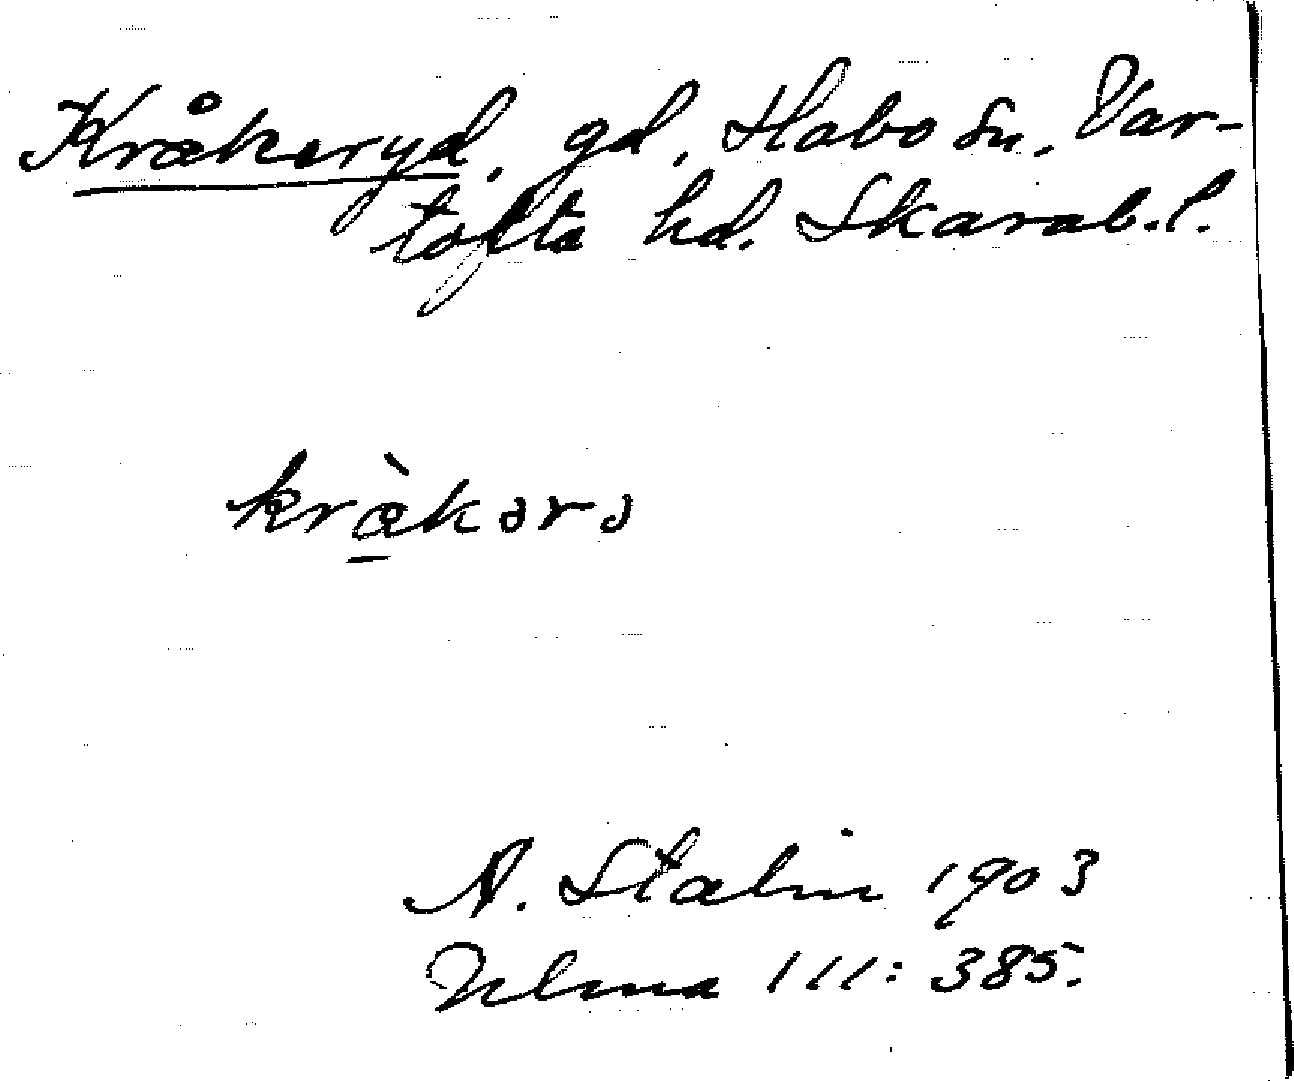 Kråkeryd, gd, Habo sn. Var-
tofta hd. Skarab.l.
krå̠̀kərə
A. Stalin 1903
Ulma 111: 385.